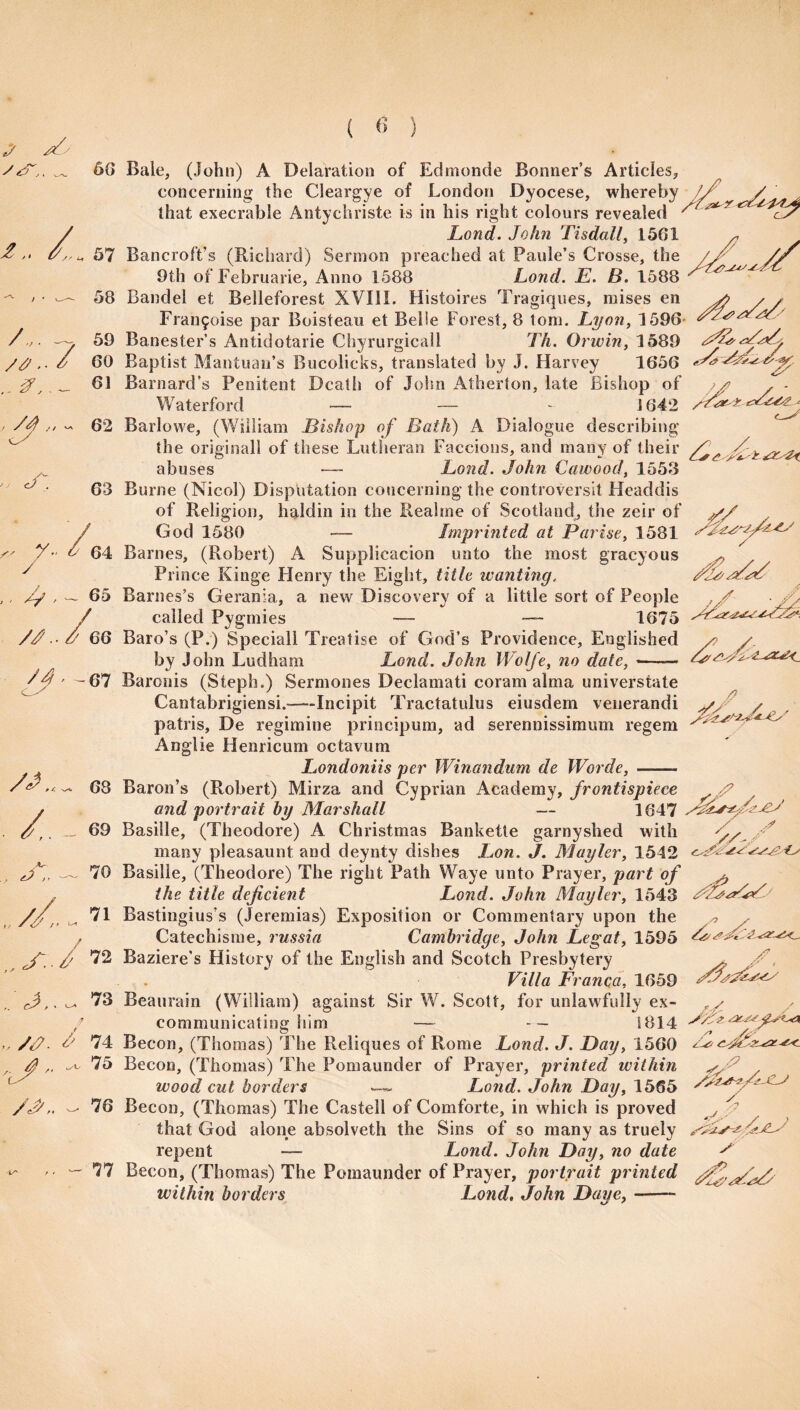 ( 6 )
56 Bale, (John) A Delaration of Edmonde Bonner's Articles,
concerning the Cleargye of London Dyocese, whereby
that execrable Antychriste is in his right colours revealed
Lond. John Tisdall, 1561
57 Bancroft's (Richard) Sermon preached at Paule's Crosse, the
9th of Februarie, Anno 1588 Lond. E. B. 1588
58 Bandel et Belleforest XVIII. Histoires Tragiques, mises en
Françoise par Boisteau et Belle Forest, 8 tom. Lyon, 1596
59 Banester's Antidotarie Chyrurgicall Th. Orwin, 1589
60 Baptist Mantuan's Bucolicks, translated by J. Harvey 1656
61 Barnard's Penitent Death of John Atherton, late Bishop of
Waterford — — - 1642
62 Barlowe, (William Bishop of Bath) A Dialogue describing
the originall of these Lutheran Faccions, and many of their
abuses — Lond. John Cawood, 1553
63 Burne (Nicol) Disputation concerning the controversit Headdis
of Religion, haldin in the Realme of Scotland, the zeir of
God 1580 — Imprinted at Parise, 1581
64 Barnes, (Robert) A Supplicacion unto the most gracyous
Prince Kinge Henry the Eight, title wanting.
65 Barnes's Gerania, a new Discovery of a little sort of People
called Pygmies — — 1675
66 Baro's (P.) Speciall Treatise of God's Providence, Englished
by John Ludham Lond. John Wolfe, no date, ——
67 Baronis (Steph.) Sermones Declamati coram alma universtate
Cantabrigiensi.——Incipit Tractatulus eiusdem venerandi
patris, De regimine principum, ad serennissimum regem
Anglie Henricum octavum
Londoniis per Winandum de Worde, ——
68 Baron's (Robert) Mirza and Cyprian Academy, frontispiece
and portrait by Marshall — 1647
69 Basille, (Theodore) A Christmas Bankette garnyshed with
many pleasaunt and deynty dishes Lon. J. Mayler, 1542
70 Basille, (Theodore) The right Path Waye unto Prayer, part of
the title deficient Lond. John Mayler, 1543
71 Bastingius's (Jeremias) Exposition or Commentary upon the
Catechisme, russia Cambridge, John Legat, 1595
72 Baziere's History of the English and Scotch Presbytery
Villa Franca, 1659
73 Beaurain (William) against Sir W. Scott, for unlawfully ex-
communicating him — -— 1814
74 Becon, (Thomas) The Reliques of Rome Lond. J. Day, 1560
75 Becon, (Thomas) The Pomaunder of Prayer, printed within
wood cut borders — Lond. John Day, 1565
76 Becon, (Thomas) The Castell of Comforte, in which is proved
that God alone absolveth the Sins of so many as truely
repent — Lond. John Day, no date
77 Becon, (Thomas) The Pomaunder of Prayer, portrait printed
within borders Lond. John Daye, ——